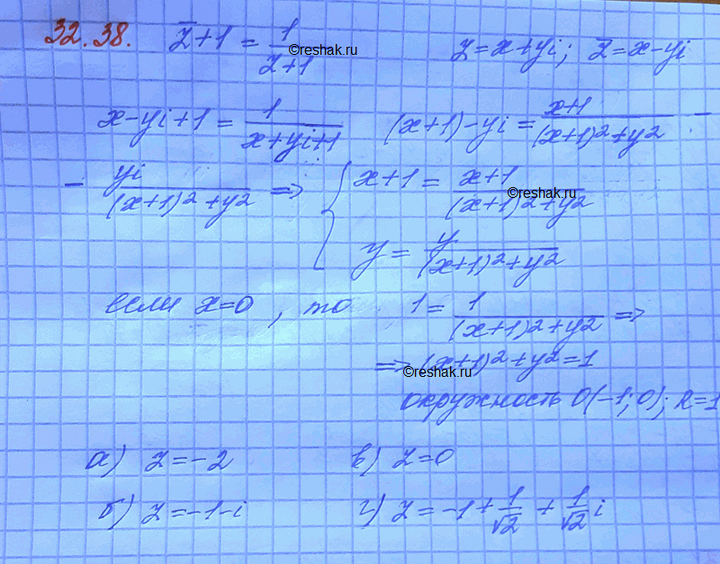 32.38. z̅+1 = 1/(z+1) z=x+yi; z̅=x-yi
©reshak.ru
x-yi+1 = 1/(x+yi+1) (x+1)-yi = (x+1)/((x+1)²+y²) -
- yi/((x+1)²+y²) => { x+1 = (x+1)/((x+1)²+y²)
©reshak.ru
y = y/((x+1)²+y²)
если x=0, то 1 = 1/((x+1)²+y²) =>
=> (x+1)²+y²=1
©reshak.ru
окружность O(-1;0); R=1
а) z=-2 в) z=0
б) z=-1-i г) z=-1+1/√2+1/√2 i